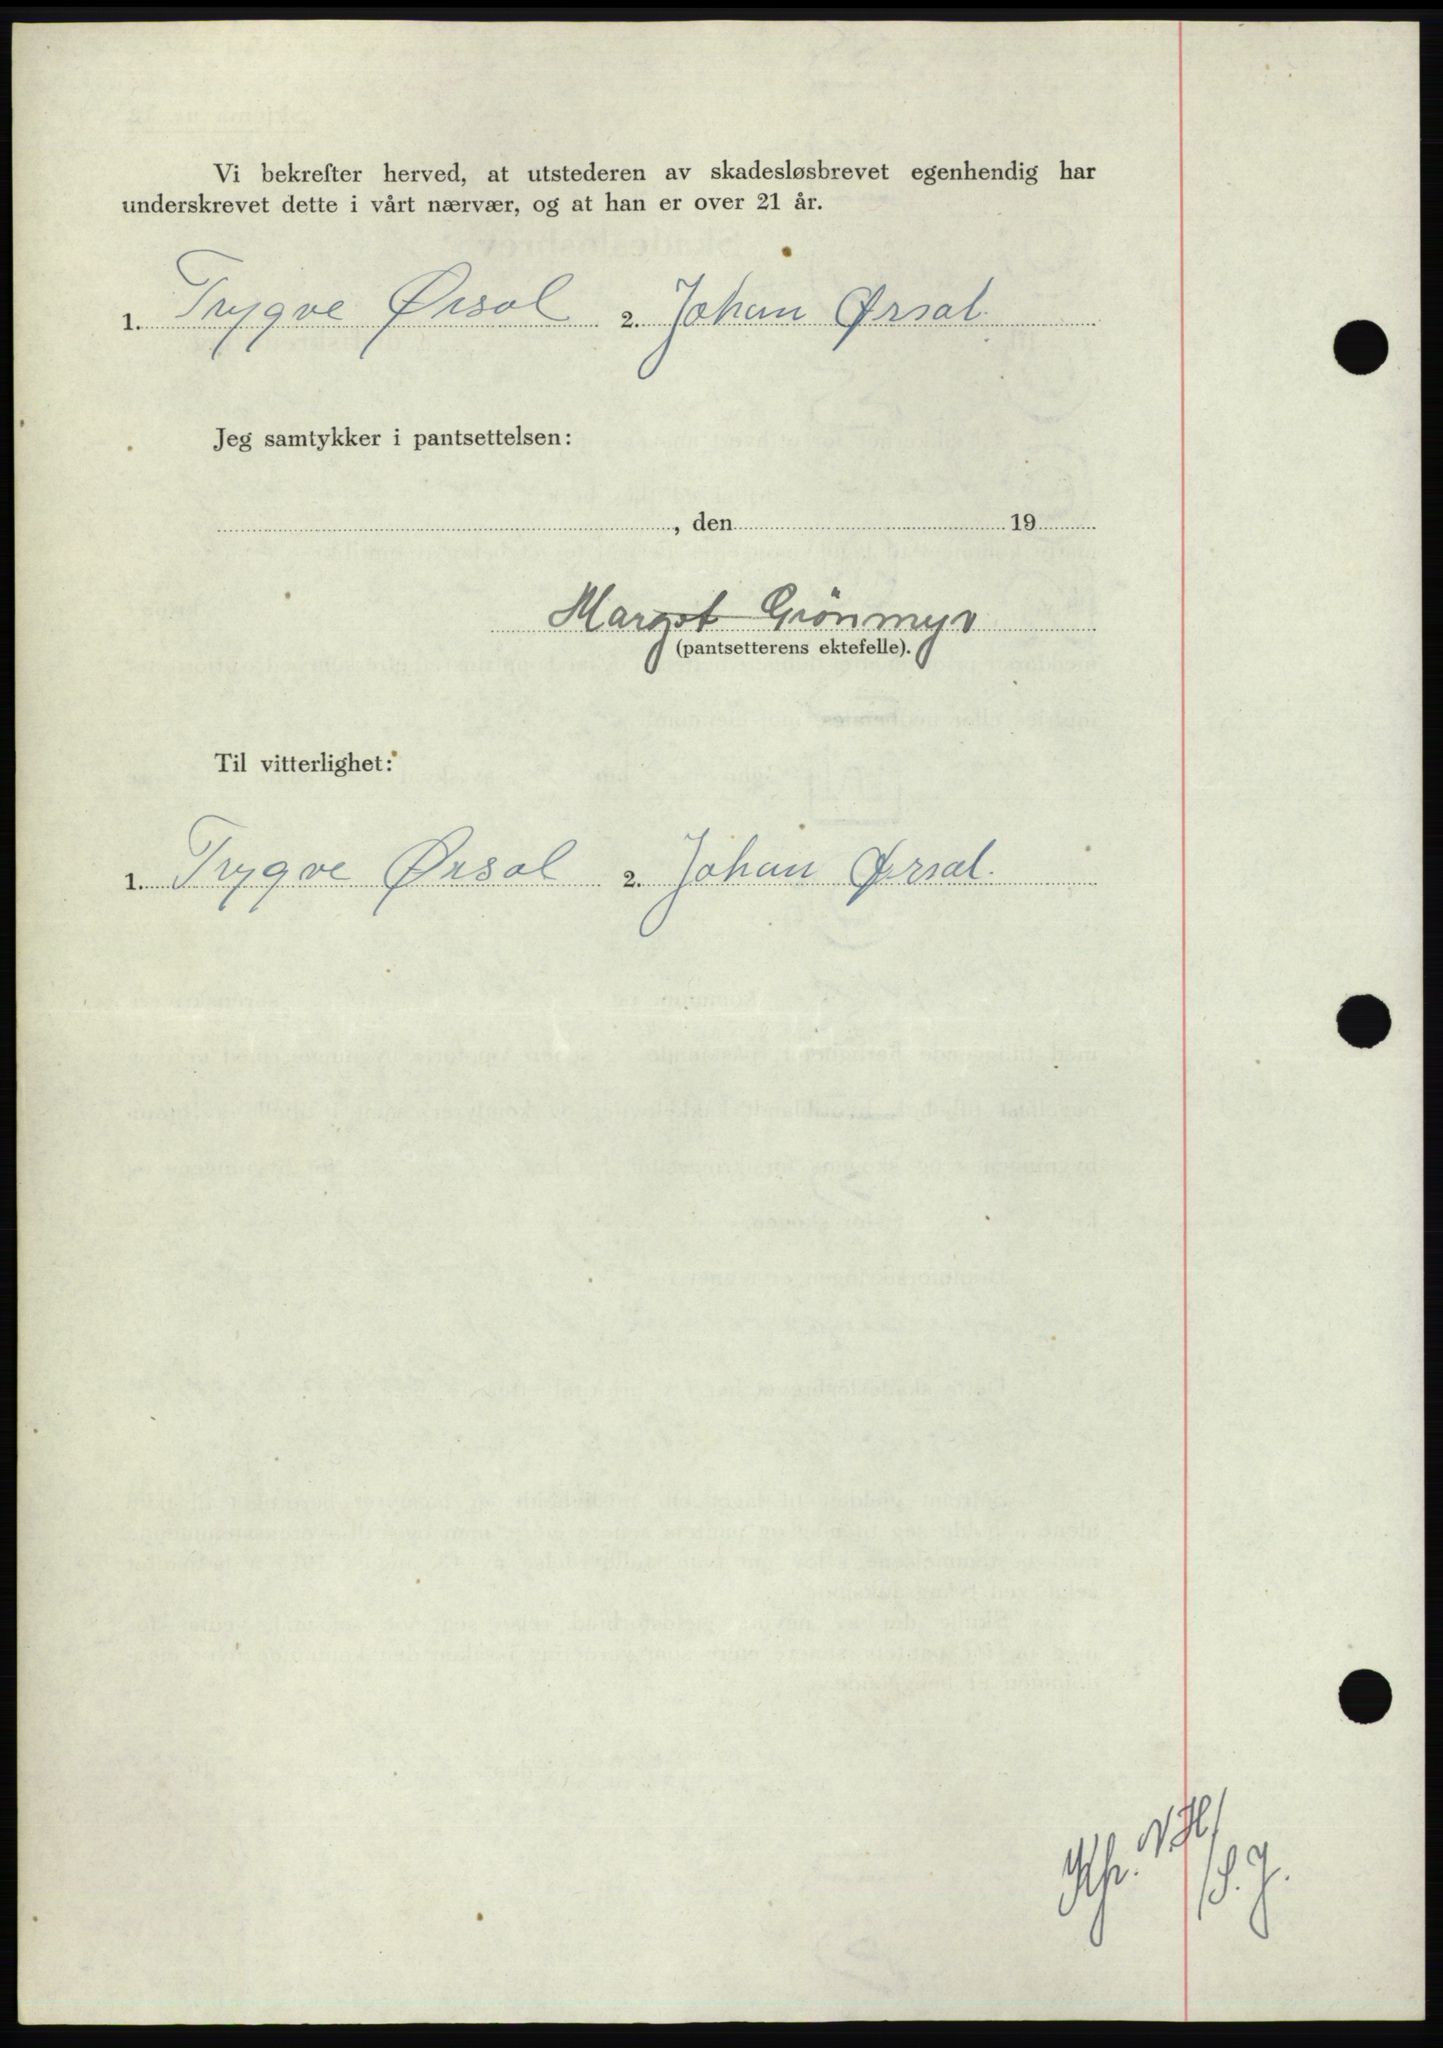 Vi bekrefter herved, at utstederen av skadesløsbrevet egenhendig har
underskrevet dette i vårt nærvær, og at han er over 21 år.
1. Trygve Ørsal 2. Johan Ørsal.
Jeg samtykker i pantsettelsen:
, den 19
Margot Grönmyr
(pantsetterens ektefelle).
Til vitterlighet:
1. Trygve Ørsal 2. Johan Ørsal.
N.H/
/S.J.